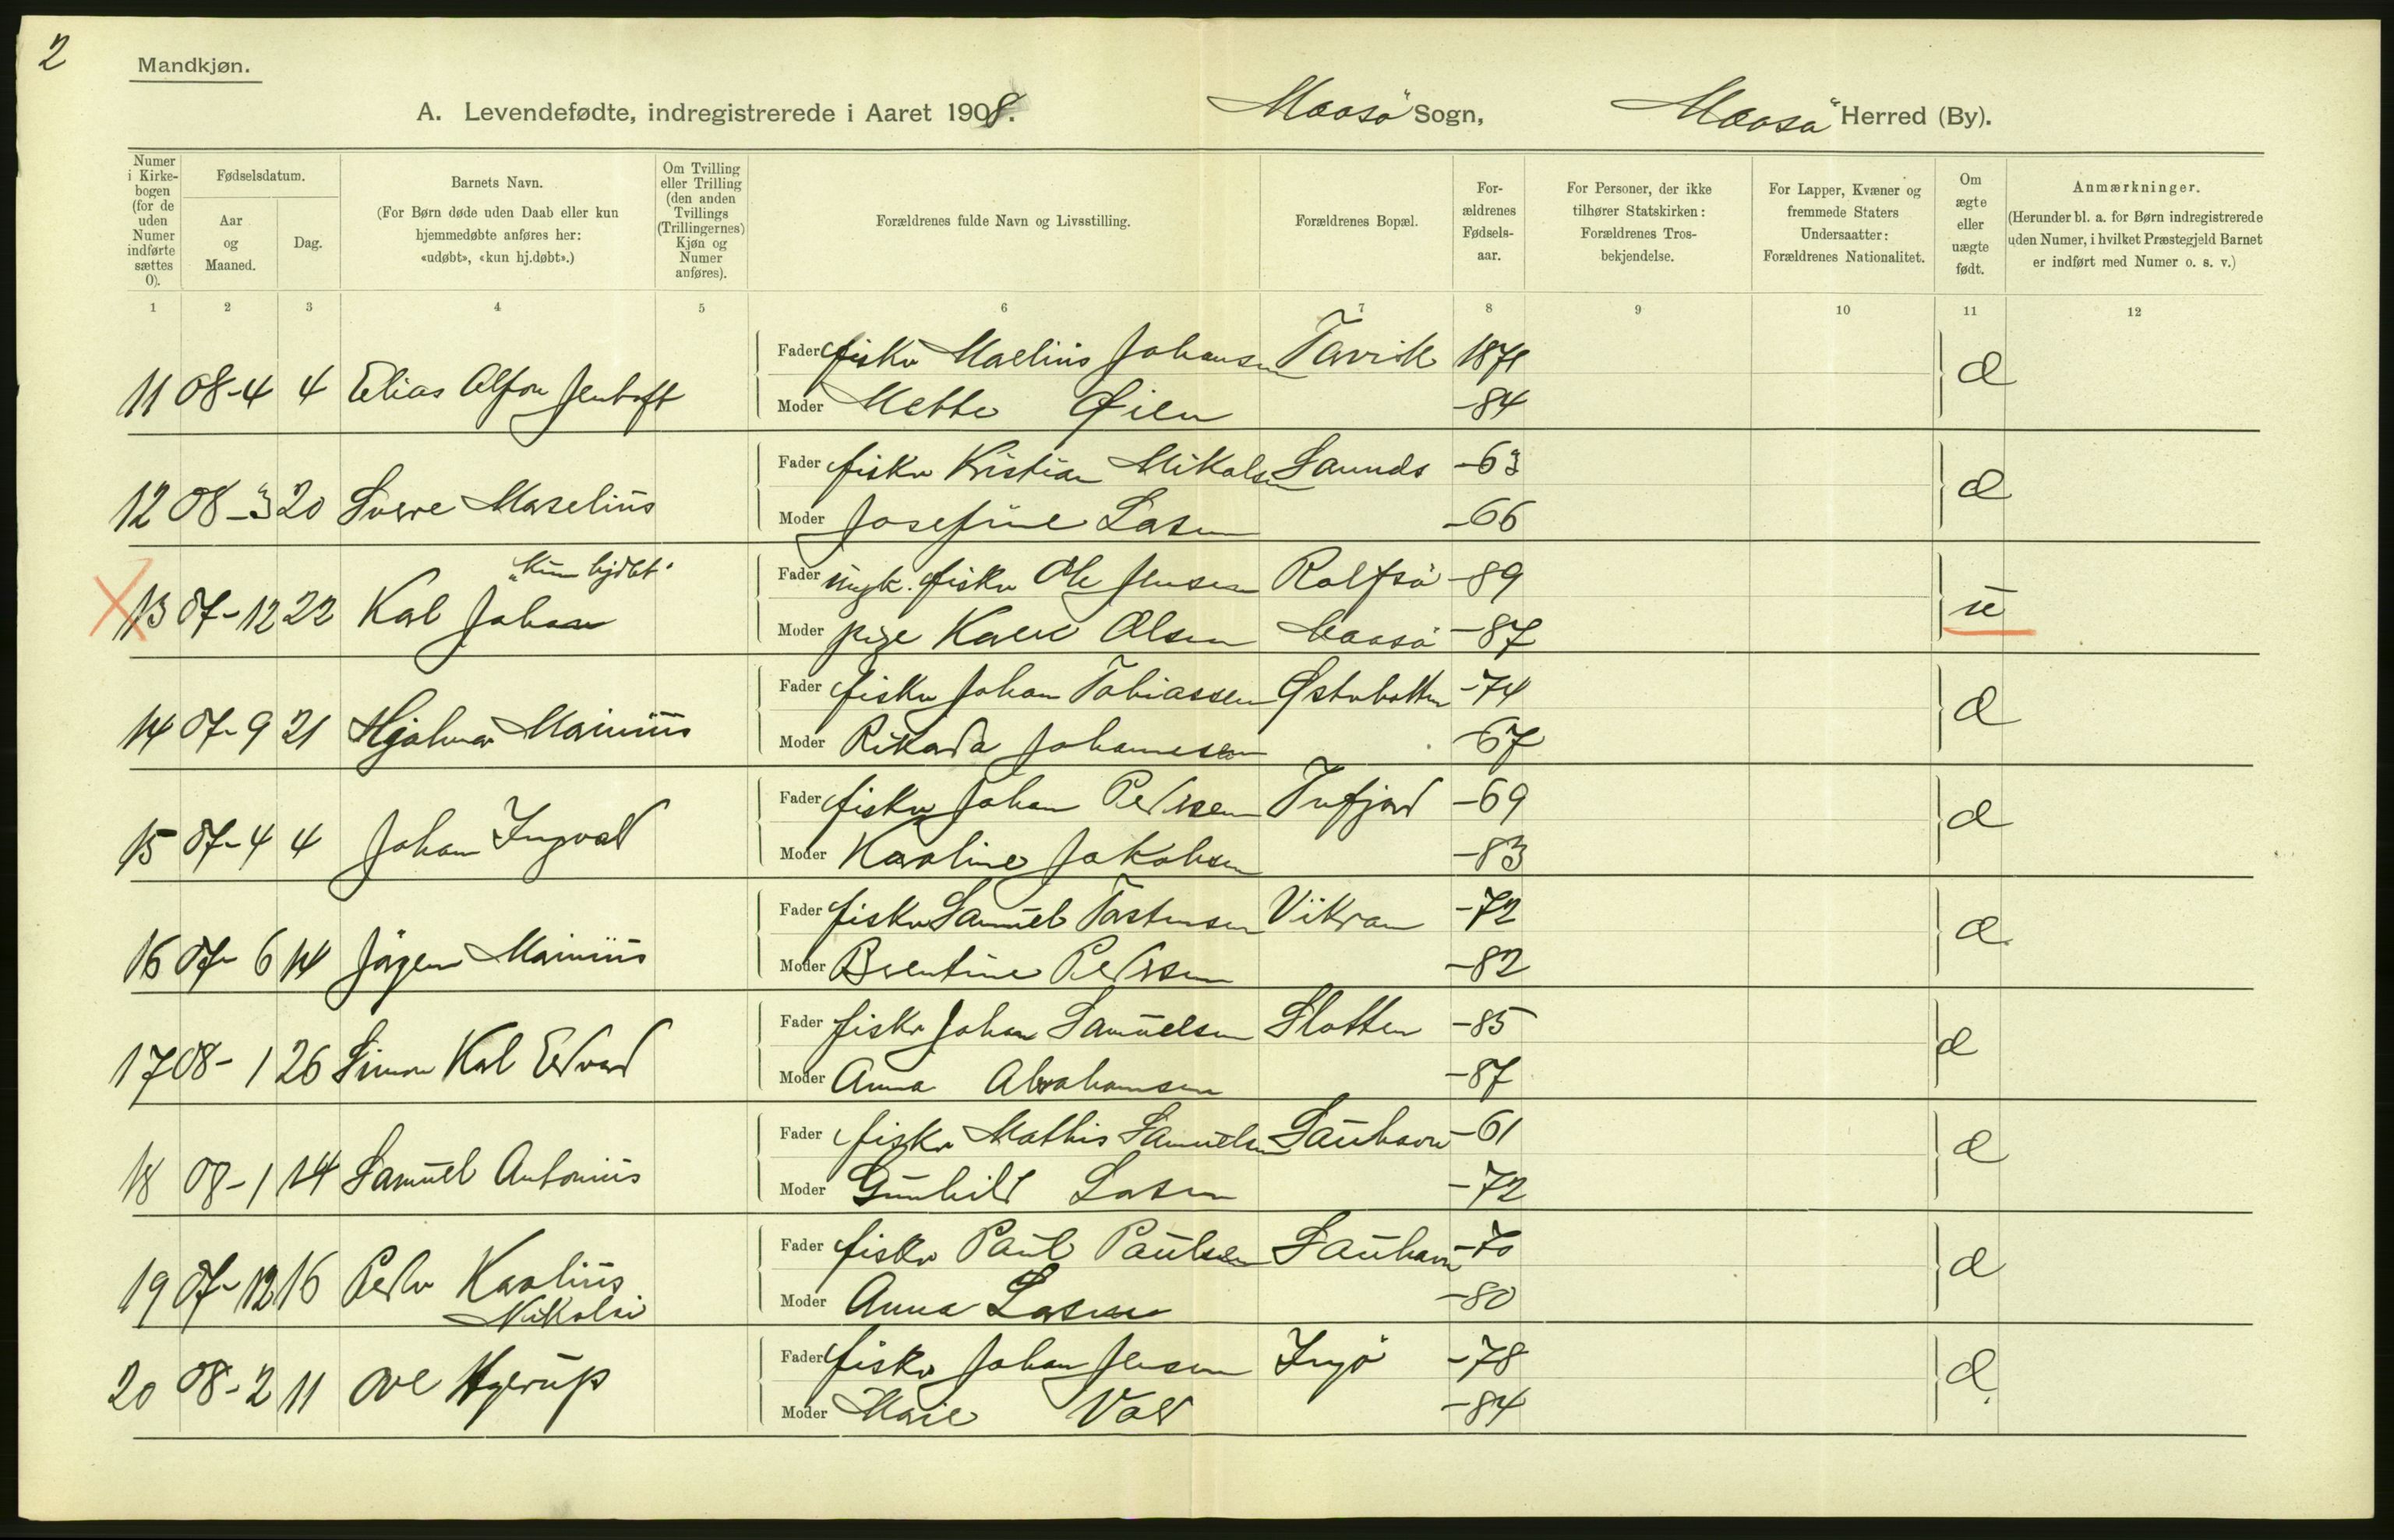 2
Mandkjøn.
A. Levendefødte, indregistrerede i Aaret 1908.
Maasö Sogn,
Maasö Herred (By).
Numer i Kirke-bogen (for de uden Numer indførte sættes 0).
Fødselsdatum.
Aar og Maaned.
Dag.
Barnets Navn.
(For Børn døde uden Daab eller kun hjemmedøbte anføres her: «udøbt», «kun hj.døbt».)
Om Tvilling eller Trilling (den anden Tvillings (Trillingernes) Kjøn og Numer anføres).
Forældrenes fulde Navn og Livsstilling.
Forældrenes Bopæl.
For-ældrenes Fødsels-aar.
For Personer, der ikke tilhører Statskirken: Forældrenes Tros-bekjendelse.
For Lapper, Kvæner og fremmede Staters Undersaatter: Forældrenes Nationalitet.
Om ægte eller uægte født.
Anmærkninger.
(Herunder bl. a. for Børn indregistrerede uden Numer, i hvilket Præstegjeld Barnet er indført med Numer o. s. v.)
1 2 3 4 5 6 7 8 9 10 11 12
Fader fisker Johansen Tarvik 1871
11 08-4 4 Elias Alfon Jentoft æ
Moder Mette Øien -84
Fader fisker Kristian Mikalsen -63
12 08-3 20 Sverre Marselius æ
Moder Josefine Larsen -66
"Kun hjdbt"
Fader ungk. fisker Ole Jensen Rolfsö -89
13 07-12 22 Karl Johan u
Moder pige Karen Olsen Maasö -87
Fader fisker Johan Tobiassen Østerbotten -74
14 07-9 21 Hjalmar Marinius æ
Moder Rikarda Johannesen -67
Fader fisker Johan Pedersen Tufjord -69
15 07-4 4 Johan Ingvald æ
Moder Karoline Jakobsen -83
Fader fisker Samuel Torstensen Vikran -72
16 07-6 14 Jörgen Marinius æ
Moder Berntine Pedersen -82
Fader fisker Johan Samuelsen Slotten -85
17 08-1 26 Simon Karl Edvard æ
Moder Anna Abrahamsen -87
Fader fisker Mathis Samuelsen Sauhavn -61
18 08-1 14 Samuel Antonius æ
Moder Gunhild Larsen -72
Fader fisker Paul Paulsen Sauhavn -70
19 07-12 16 Peder Karolius
Nikolai æ
Moder Anna Larsen -80
Fader fisker Johan Jensen Ingö -78
20 08-2 11 Ove Hjerup æ
Moder Marie Vold -84